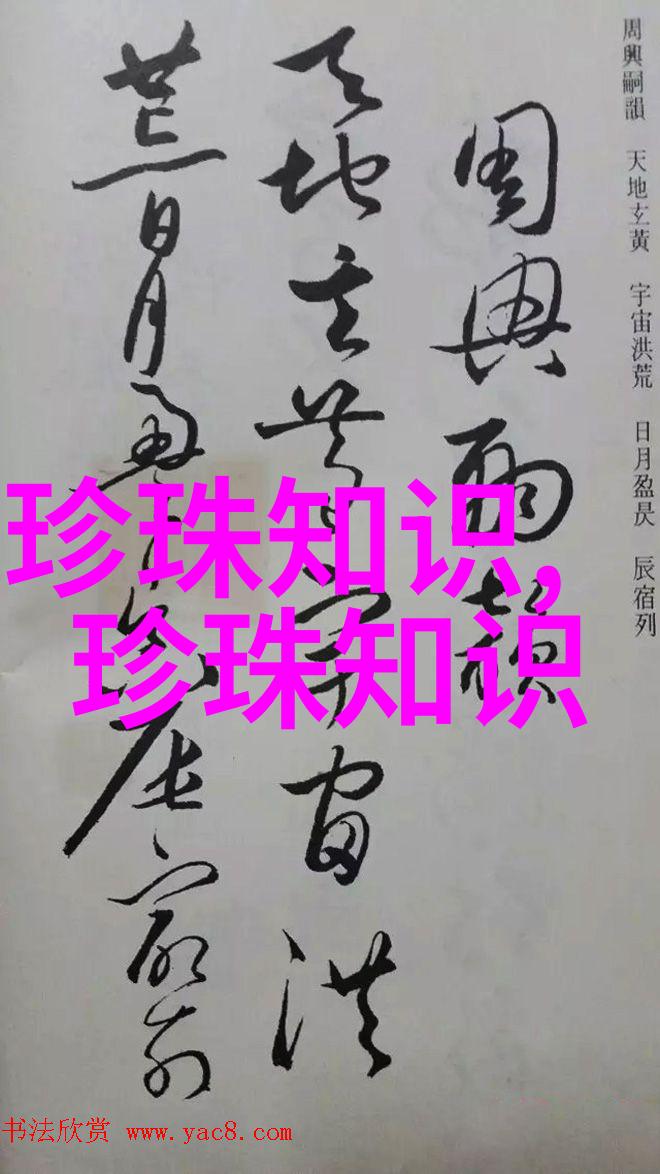 周興嗣韻　天地玄黃　宇宙洪荒　日月盈昃　辰宿列
周興嗣韻
天地玄黃宇宙洪
荒日月盈昃辰宿列
珍珠知识,
珍珠知识
书法欣赏 www.yac8.com